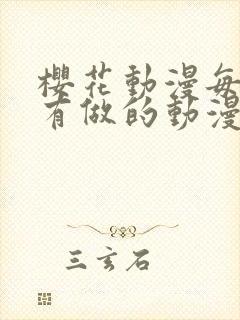 櫻花動漫每
有做的動漫
三玄石